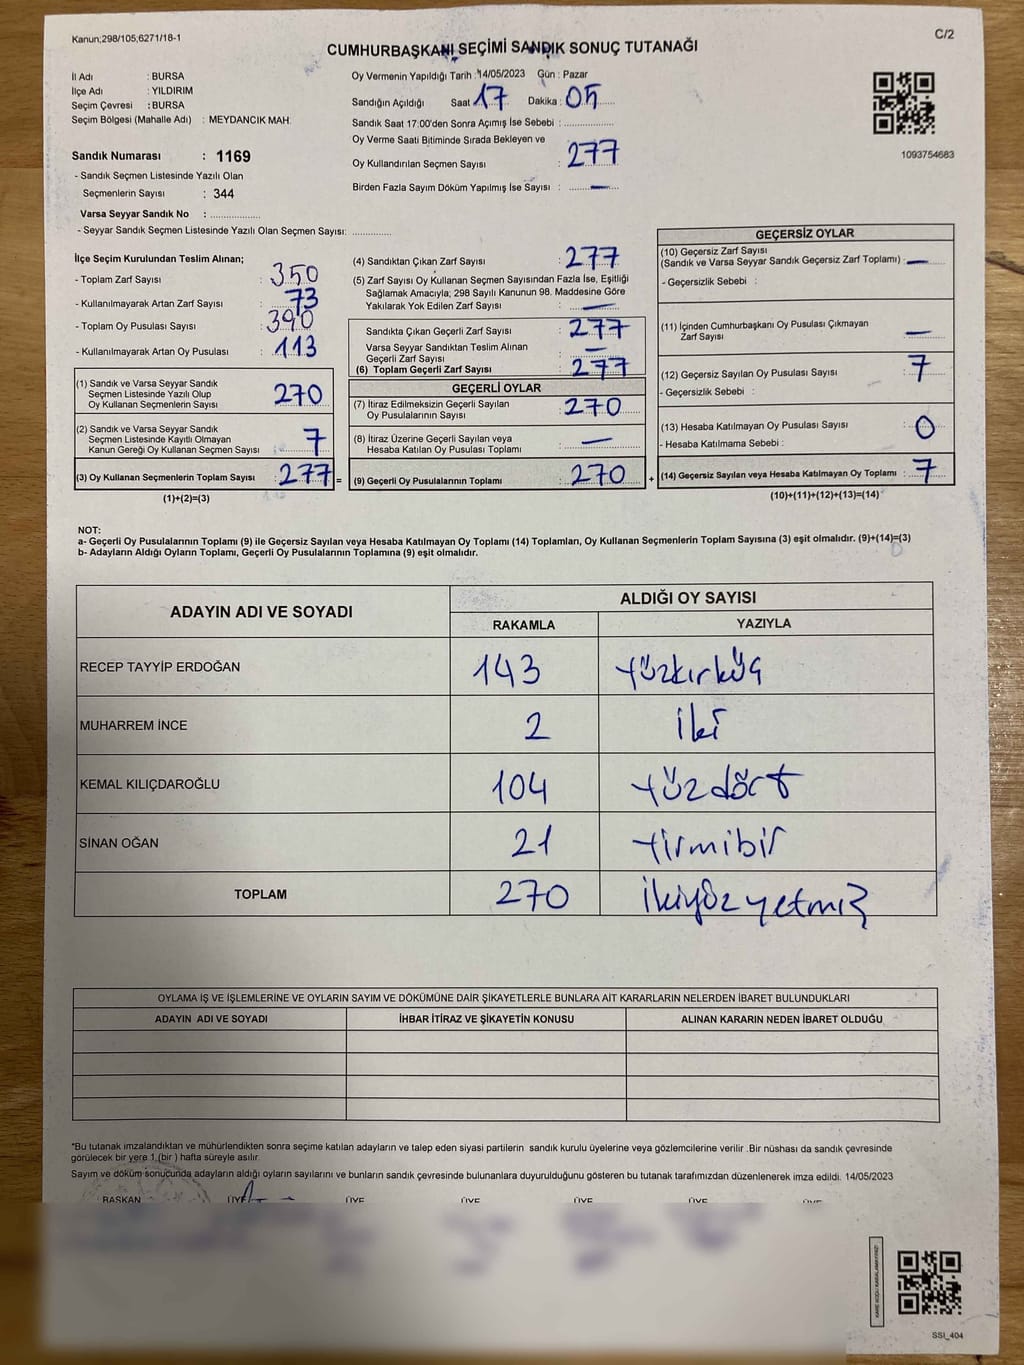 Kanun;298/105;6271/18-1
C/2
CUMHURBAŞKANI SEÇİMİ SANDIK SONUÇ TUTANAĞI
İl Adı : BURSA
İlçe Adı : YILDIRIM
Seçim Çevresi : BURSA
Seçim Bölgesi (Mahalle Adı) : MEYDANCIK MAH.
Sandık Numarası : 1169
- Sandık Seçmen Listesinde Yazılı Olan
Seçmenlerin Sayısı : 344
Varsa Seyyar Sandık No : ..................
- Seyyar Sandık Seçmen Listesinde Yazılı Olan Seçmen Sayısı: ..............
Oy Vermenin Yapıldığı Tarih : 14/05/2023 Gün : Pazar
Sandığın Açıldığı Saat 17 Dakika : 05
Sandık Saat 17:00'den Sonra Açımış İse Sebebi : ..................
Oy Verme Saati Bitiminde Sırada Bekleyen ve
Oy Kullandırılan Seçmen Sayısı : 277
Birden Fazla Sayım Döküm Yapılmış İse Sayısı : —
1093754683
İlçe Seçim Kurulundan Teslim Alınan;
- Toplam Zarf Sayısı : 350
- Kullanılmayarak Artan Zarf Sayısı : 73
- Toplam Oy Pusulası Sayısı : 390
- Kullanılmayarak Artan Oy Pusulası : 113
(1) Sandık ve Varsa Seyyar Sandık
Seçmen Listesinde Yazılı Olup
Oy Kullanan Seçmenlerin Sayısı 270
(2) Sandık ve Varsa Seyyar Sandık
Seçmen Listesinde Kayıtlı Olmayan
Kanun Gereği Oy Kullanan Seçmen Sayısı : 7
(3) Oy Kullanan Seçmenlerin Toplam Sayısı : 277 =
(1)+(2)=(3)
(4) Sandıktan Çıkan Zarf Sayısı : 277
(5) Zarf Sayısı Oy Kullanan Seçmen Sayısından Fazla İse, Eşitliği
Sağlamak Amacıyla; 298 Sayılı Kanunun 98. Maddesine Göre
Yakılarak Yok Edilen Zarf Sayısı : —
Sandıkta Çıkan Geçerli Zarf Sayısı : 277
Varsa Seyyar Sandıktan Teslim Alınan
Geçerli Zarf Sayısı : —
(6) Toplam Geçerli Zarf Sayısı : 277
GEÇERLİ OYLAR
(7) İtiraz Edilmeksizin Geçerli Sayılan
Oy Pusulalarının Sayısı : 270
(8) İtiraz Üzerine Geçerli Sayılan veya
Hesaba Katılan Oy Pusulası Toplamı : —
(9) Geçerli Oy Pusulalarının Toplamı : 270 +
GEÇERSİZ OYLAR
(10) Geçersiz Zarf Sayısı
(Sandık ve Varsa Seyyar Sandık Geçersiz Zarf Toplamı) : —
- Geçersizlik Sebebi :
(11) İçinden Cumhurbaşkanı Oy Pusulası Çıkmayan
Zarf Sayısı : —
(12) Geçersiz Sayılan Oy Pusulası Sayısı : 7
- Geçersizlik Sebebi :
(13) Hesaba Katılmayan Oy Pusulası Sayısı : 0
- Hesaba Katılmama Sebebi :
(14) Geçersiz Sayılan veya Hesaba Katılmayan Oy Toplamı : 7
(10)+(11)+(12)+(13)=(14)
NOT:
a- Geçerli Oy Pusulalarının Toplamı (9) ile Geçersiz Sayılan veya Hesaba Katılmayan Oy Toplamı (14) Toplamları, Oy Kullanan Seçmenlerin Toplam Sayısına (3) eşit olmalıdır. (9)+(14)=(3)
b- Adayların Aldığı Oyların Toplamı, Geçerli Oy Pusulalarının Toplamına (9) eşit olmalıdır.
ADAYIN ADI VE SOYADI ALDIĞI OY SAYISI
RAKAMLA YAZIYLA
RECEP TAYYİP ERDOĞAN 143 Yüzkırküç
MUHARREM İNCE 2 İki
KEMAL KILIÇDAROĞLU 104 Yüzdört
SİNAN OĞAN 21 Yirmibir
TOPLAM 270 İkiyüzyetmiş
OYLAMA İŞ VE İŞLEMLERİNE VE OYLARIN SAYIM VE DÖKÜMÜNE DAİR ŞİKAYETLERLE BUNLARA AİT KARARLARIN NELERDEN İBARET BULUNDUKLARI
ADAYIN ADI VE SOYADI İHBAR İTİRAZ VE ŞİKAYETİN KONUSU ALINAN KARARIN NEDEN İBARET OLDUĞU
*Bu tutanak imzalandıktan ve mühürlendikten sonra seçime katılan adayların ve talep eden siyasi partilerin sandık kurulu üyelerine veya gözlemcilerine verilir .Bir nüshası da sandık çevresinde
görülecek bir yere 1 (bir ) hafta süreyle asılır.
Sayım ve döküm sonucunda adayların aldığı oyların sayılarını ve bunların sandık çevresinde bulunanlara duyurulduğunu gösteren bu tutanak tarafımızdan düzenlenerek imza edildi. 14/05/2023
BAŞKAN ÜYE ÜYE ÜYE ÜYE ÜYE ÜYE
SSI_404